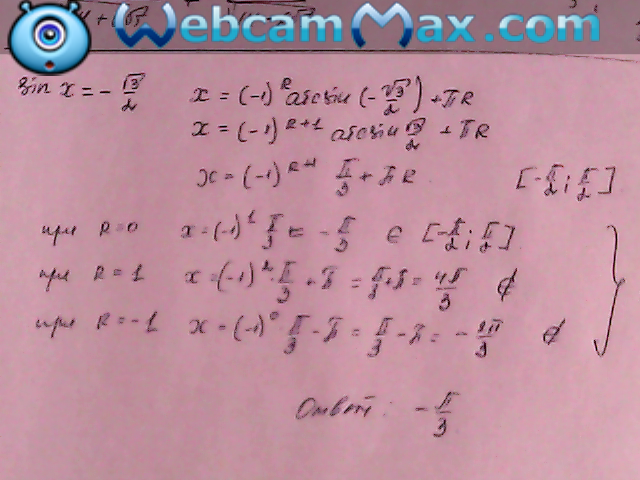 WebcamMax.com
sin x = - √3/2
x = (-1)^k arcsin (- √3/2) + πk
x = (-1)^k+1 arcsin √3/2 + πk
x = (-1)^k+1 π/3 + πk [-π/2; π/2]
при k=0 x = (-1)^1 π/3 = - π/3 ∈ [-π/2; π/2]
при k=1 x = (-1)^2 · π/3 + π = π/3 + π = 4π/3 ∉
при k=-1 x = (-1)^0 π/3 - π = π/3 - π = - 2π/3 ∉
Ответ: - π/3